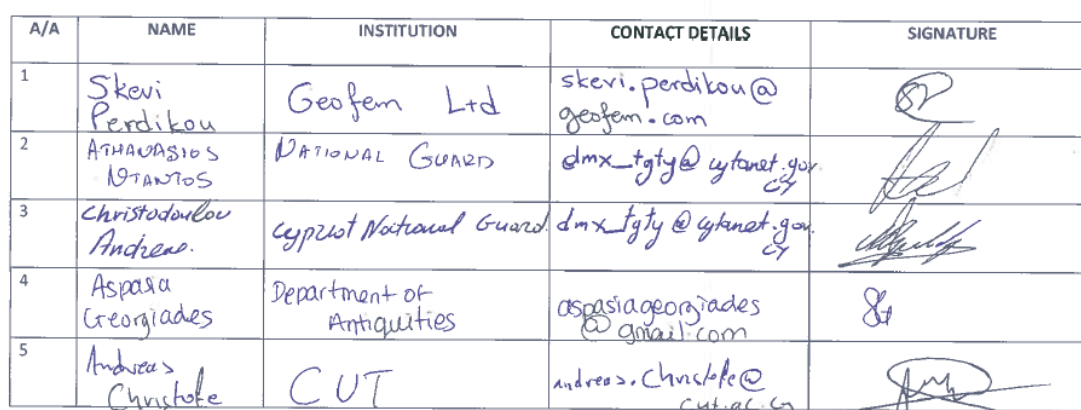 A/A NAME INSTITUTION CONTACT DETAILS SIGNATURE
1 Skevi Perdikou Geofem Ltd skevi.perdikou@ geofem.com
2 ATHANASIOS NTANTOS NATIONAL GUARD dmx_tgty@cytanet.gov. cy
3 Christodoulou Andreas. Cypriot National Guard. dmx_tgty@cytanet.gov. cy
4 Aspasia Georgiades Department of Antiquities aspasiageorgiades @gmail.com
5 Andreas Christofe CUT andreas.christofe@ cut.ac.cy